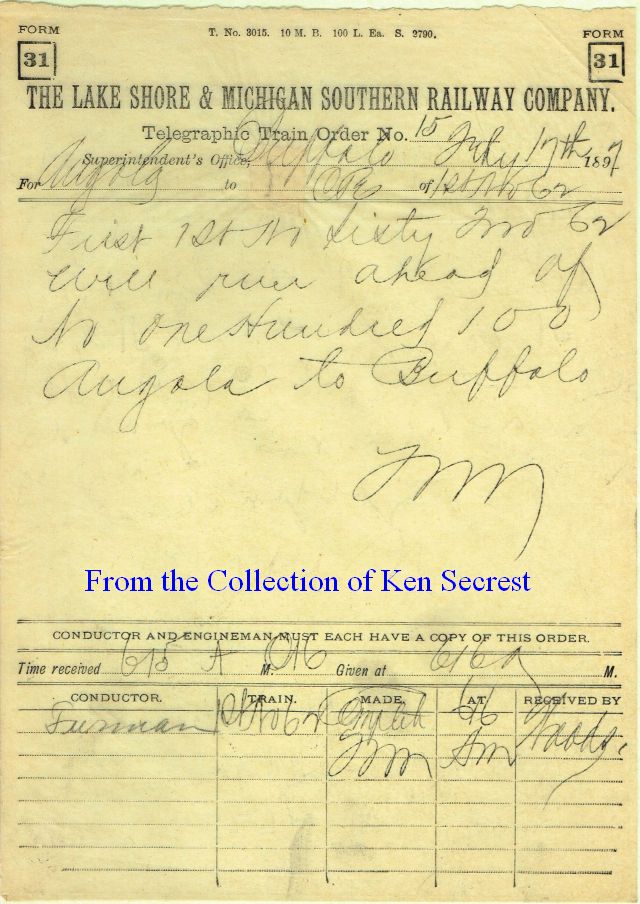 FORM T. No. 3015. 10 M. B. 100 L. Ea. S. 2790. FORM
31 31
THE LAKE SHORE & MICHIGAN SOUTHERN RAILWAY COMPANY.
Telegraphic Train Order No. 15
Superintendent's Office, Buffalo July 17th 1897
For Angola to C&E of 1st No 62
First 1st No Sixty Two 62
will run ahead of
No one Hundred 100
Angola to Buffalo
From the Collection of Ken Secrest
CONDUCTOR AND ENGINEMAN MUST EACH HAVE A COPY OF THIS ORDER.
Time received 615 A M. Given at 616 A M.
CONDUCTOR. TRAIN. MADE. AT RECEIVED BY
Furman 1st No 62 Complete 616
Am